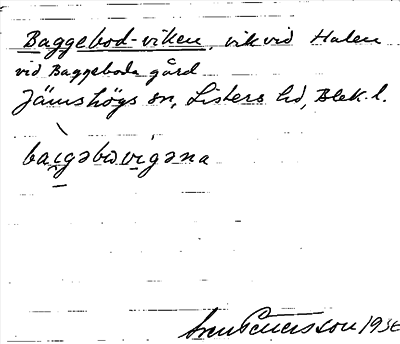 Baggebod-viken, vik vid Halen
vid Baggeboda gård
Jämshögs sn, Listers hd, Blek. l.
baigəbovigəna
Sven Petersson 1936